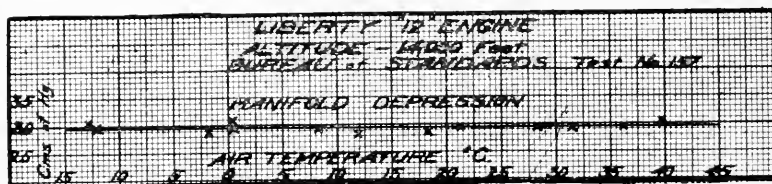 LIBERTY "12" ENGINE
ALTITUDE - 14,000 Feet
BUREAU of STANDARDS Test No. 157
MANIFOLD DEPRESSION
3.5
3.0
2.5
Cms of Hg
AIR TEMPERATURE °C.
15 10 5 0 5 10 15 20 25 30 35 40 45